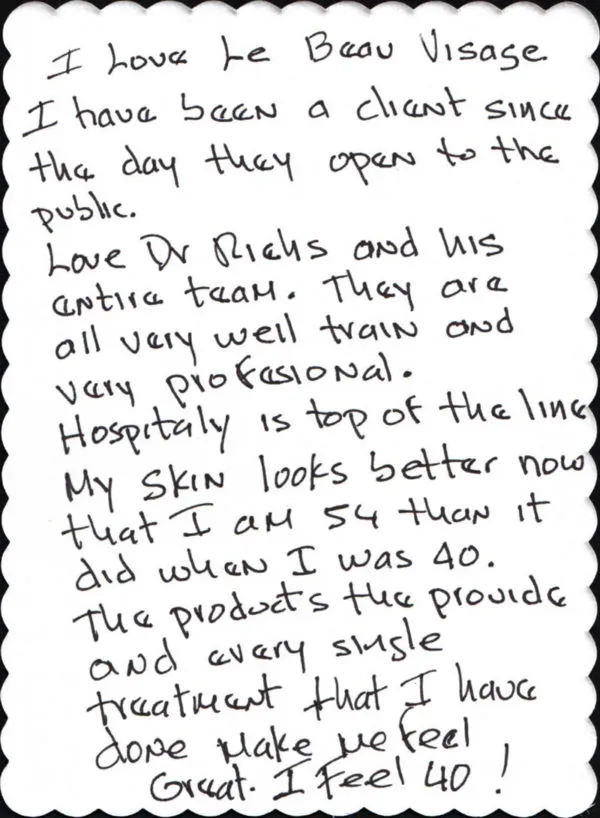 I Love Le Beau Visage.
I have been a client since
the day they open to the
public.
Love Dr Riahs and his
entire team. They are
all very well train and
very profesional.
Hospitaly is top of the line
My skin looks better now
that I am 54 than it
did when I was 40.
The products the provide
and every single
treatment that I have
done make me feel
Great. I Feel 40!